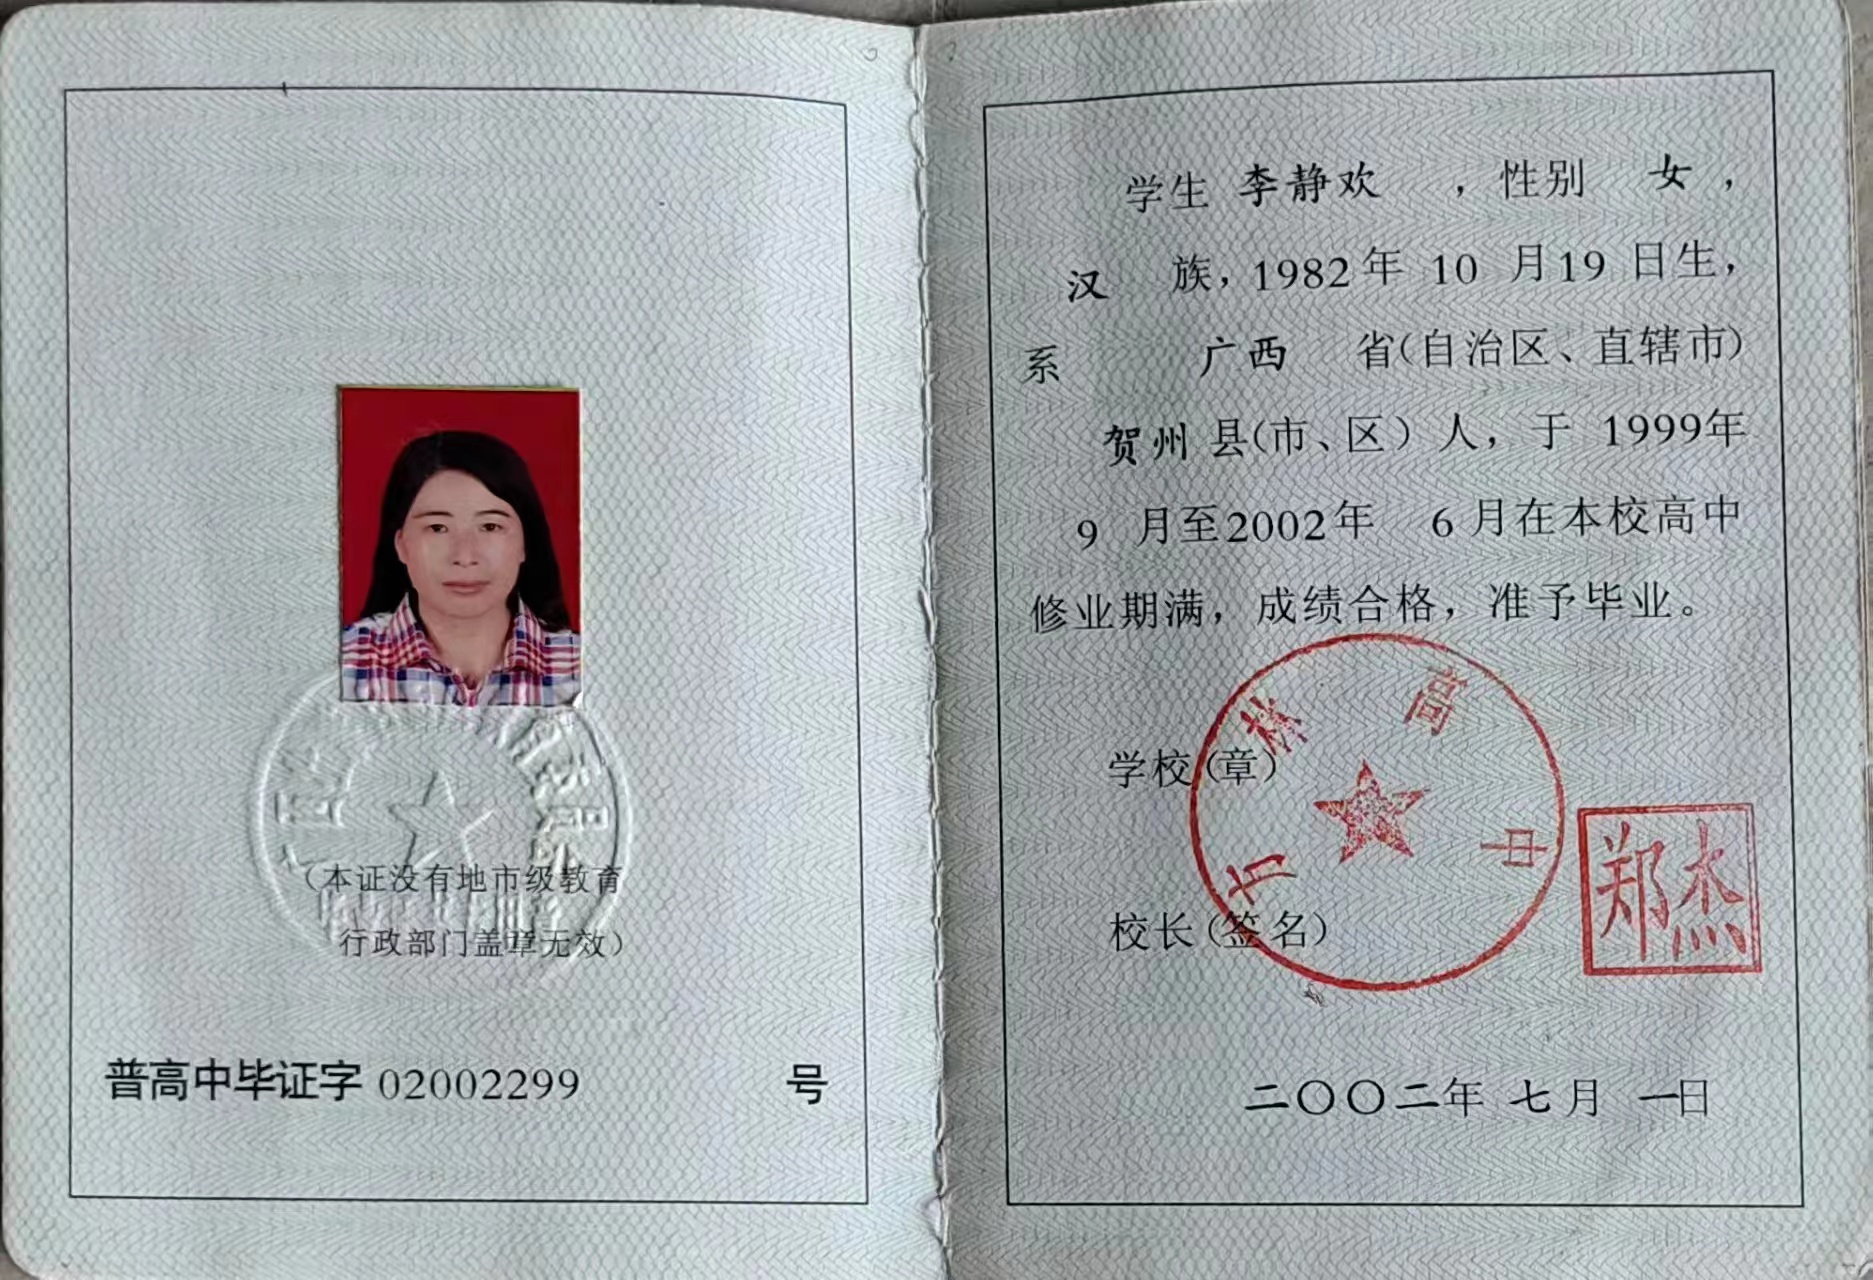 （本证没有地市级教育
行政部门盖章无效）
普高中毕证字 02002299 号
学生 李静欢 ，性别 女 ，
汉 族，1982年 10 月19 日生，
系 广西 省（自治区、直辖市）
贺州 县（市、区）人，于 1999年
9 月至2002年 6月在本校高中
修业期满，成绩合格，准予毕业。
学校（章）
林 高 中
校长（签名）
郑杰
二〇〇二年 七月 一日